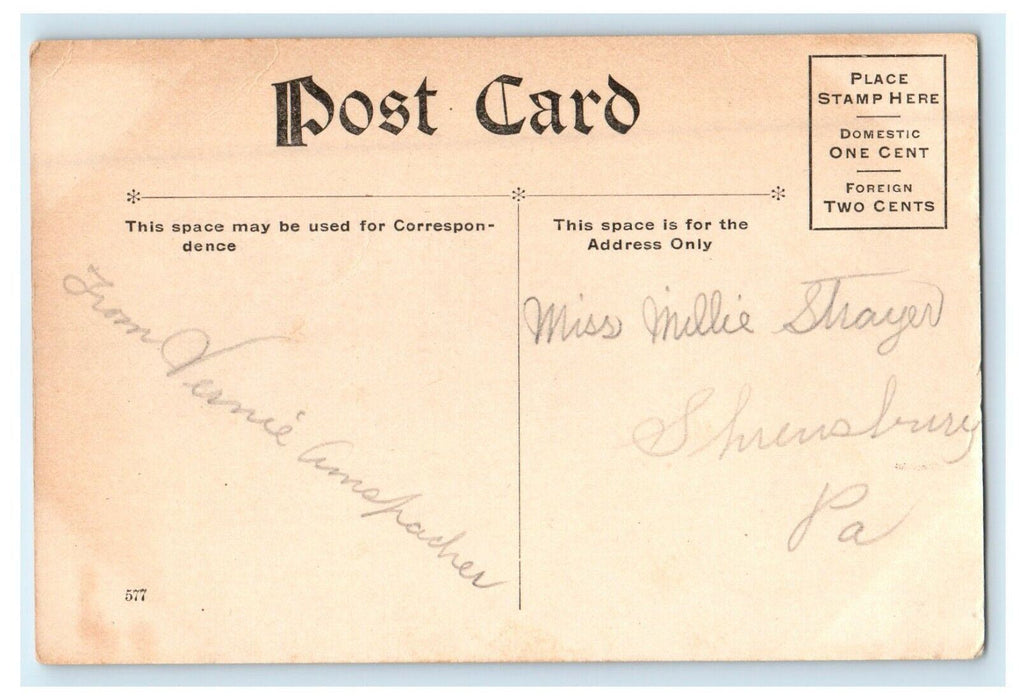 Post Card
PLACE
STAMP HERE
DOMESTIC
ONE CENT
FOREIGN
TWO CENTS
This space may be used for Correspon-
dence
From Vernie Amspacher
577
This space is for the
Address Only
Miss Millie Strayer
Shrewsbury
Pa